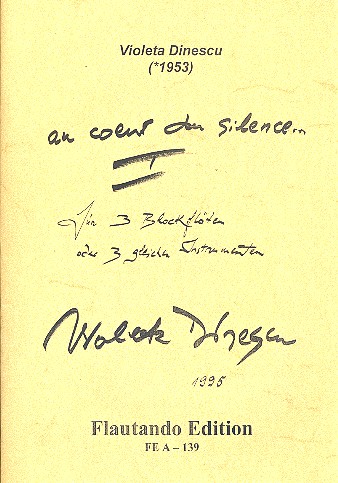 Violeta Dinescu
(*1953)
au coeur du silence...
I
für 3 Blockflöten
oder 3 gleichen Instrumenten
Violeta Dinescu
1995
Flautando Edition
FE A – 139